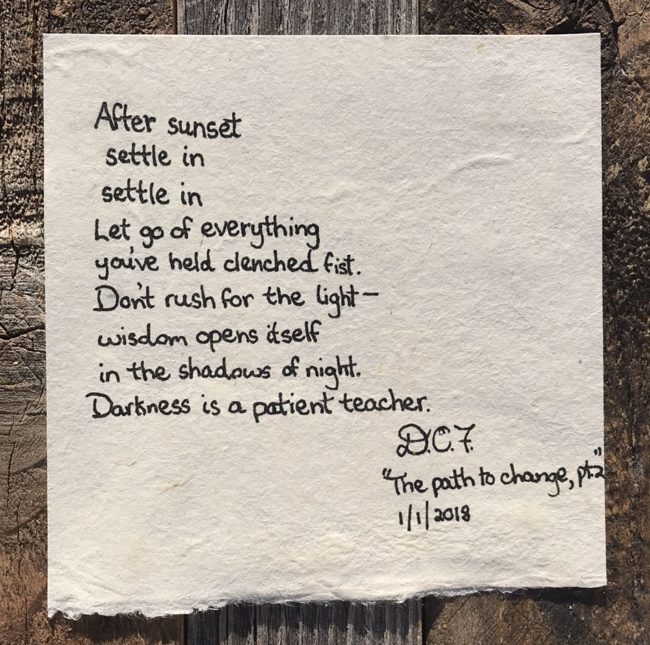 After sunset
settle in
settle in
Let go of everything
you've held clenched fist.
Don't rush for the light—
wisdom opens itself
in the shadows of night.
Darkness is a patient teacher.
D.C.F.
"The path to change, pt.2"
1/1/2018